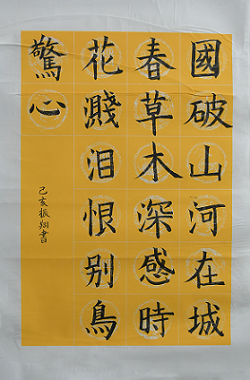 國破山河在城
春草木深感時
花濺泪恨别鳥
驚心
己亥振翔書